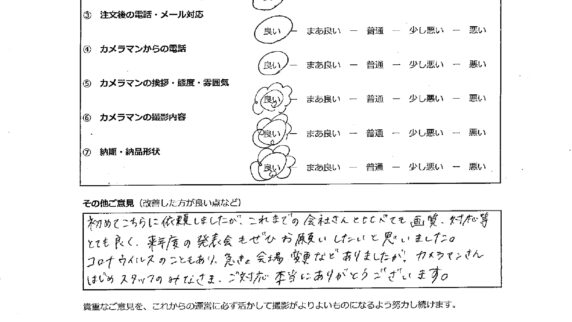 ③ 注文後の電話・メール対応
良い ー まあ良い ー 普通 ー 少し悪い ー 悪い
④ カメラマンからの電話
良い ー まあ良い ー 普通 ー 少し悪い ー 悪い
⑤ カメラマンの挨拶・態度・雰囲気
良い ー まあ良い ー 普通 ー 少し悪い ー 悪い
⑥ カメラマンの撮影内容
良い ー まあ良い ー 普通 ー 少し悪い ー 悪い
⑦ 納期・納品形状
良い ー まあ良い ー 普通 ー 少し悪い ー 悪い
その他ご意見（改善した方が良い点など）
初めてこちらに依頼しましたが、これまでの会社さんと比べても画質、対応等
とても良く、来年度の発表会もぜひお願いしたいと思いました。
コロナウイルスのこともあり、急きょ会場変更などありましたが、カメラマンさん
はじめスタッフのみなさま、ご対応本当にありがとうございます。
貴重なご意見を、これからの運営に必ず活かして撮影がよりよいものになるよう努力し続けます。